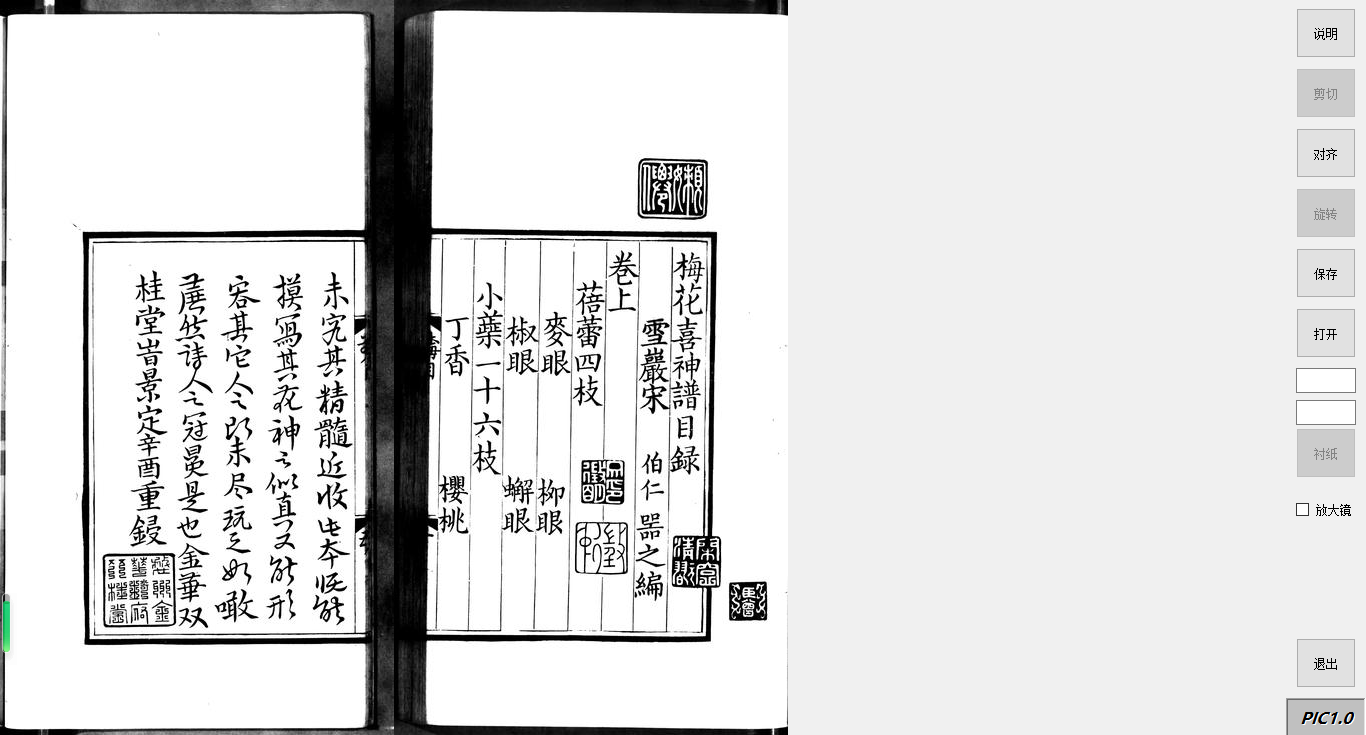 梅花喜神譜目録
雪巖宋 伯仁 器之編
巻上
蓓蕾四枝
麥眼 柳眼
椒眼 蠏眼
小蘂一十六枝
丁香 櫻桃
未究其精髓近收此本既能
摸寫其花神之似真又能形
容其它人之所未尽玩之如噉
蔗然诗人之冠冕是也金華双
桂堂旹景定辛酉重鋟
说明
剪切
对齐
旋转
保存
打开
衬纸
放大镜
退出
PIC1.0